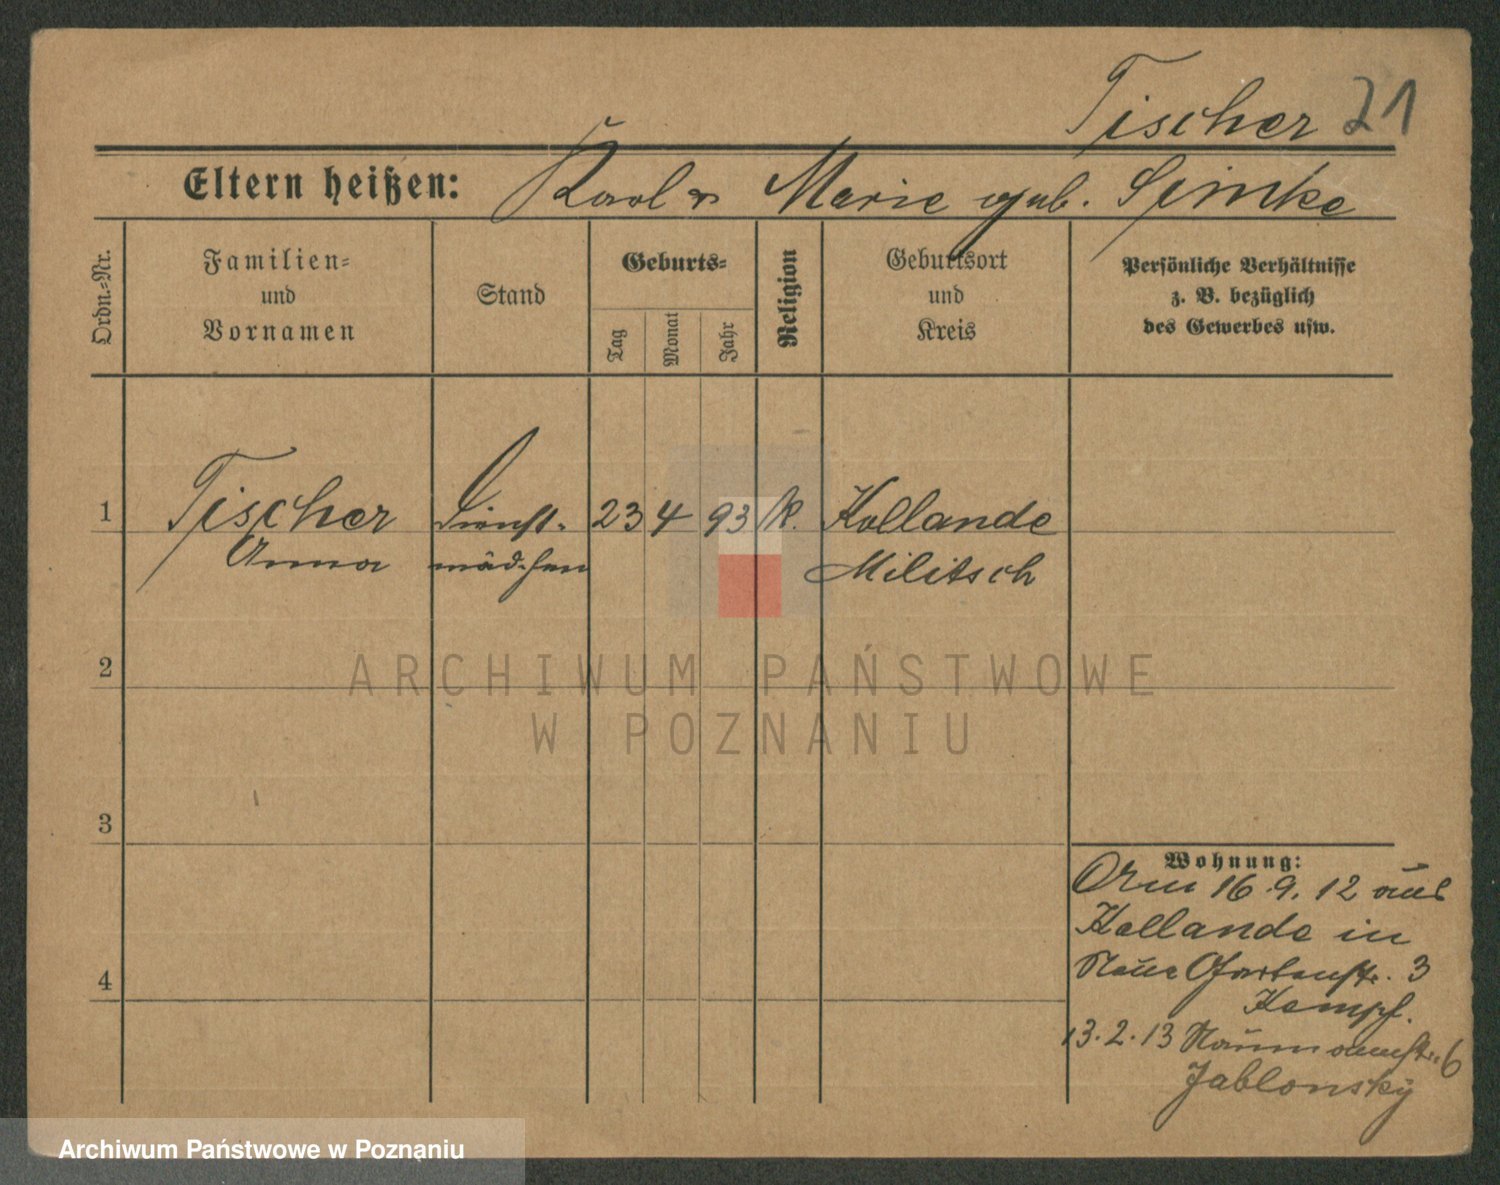 Tischer 21
Eltern heißen: Karl u Marie geb. Simke
Ordn.=Nr.
Familien=
und
Vornamen
Stand
Geburts=
Tag
Monat
Jahr
Religion
Geburtsort
und
Kreis
Persönliche Verhältnisse
z. B. bezüglich
des Gewerbes usw.
1 Tischer Dienst- 23 4 93 k. Kollande
Anna mädchen Militsch
2
3
4
Wohnung:
Am 16.9.12 aus
Kollande in
Neue Gartenstr. 3
Kempf.
13.2.13 Naumannstr. 6
Jablonsky
ARCHIWUM PAŃSTWOWE
W POZNANIU
Archiwum Państwowe w Poznaniu